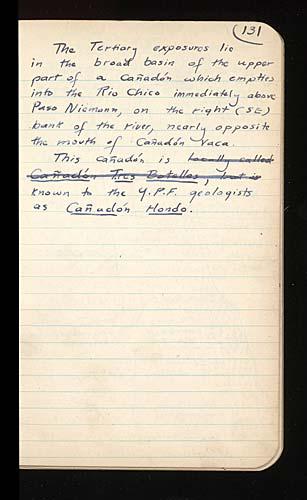 131
The Tertiary exposures lie
in the broad basin of the upper
part of a Cañadón which empties
into the Rio Chico immediately above
Paso Niemann, on the right (SE)
bank of the river, nearly opposite
the mouth of Cañadón Vaca.
This cañadón is locally called
Cañadón Tres Botellas, but is
known to the Y.P.F. geologists
as Cañadón Hondo.